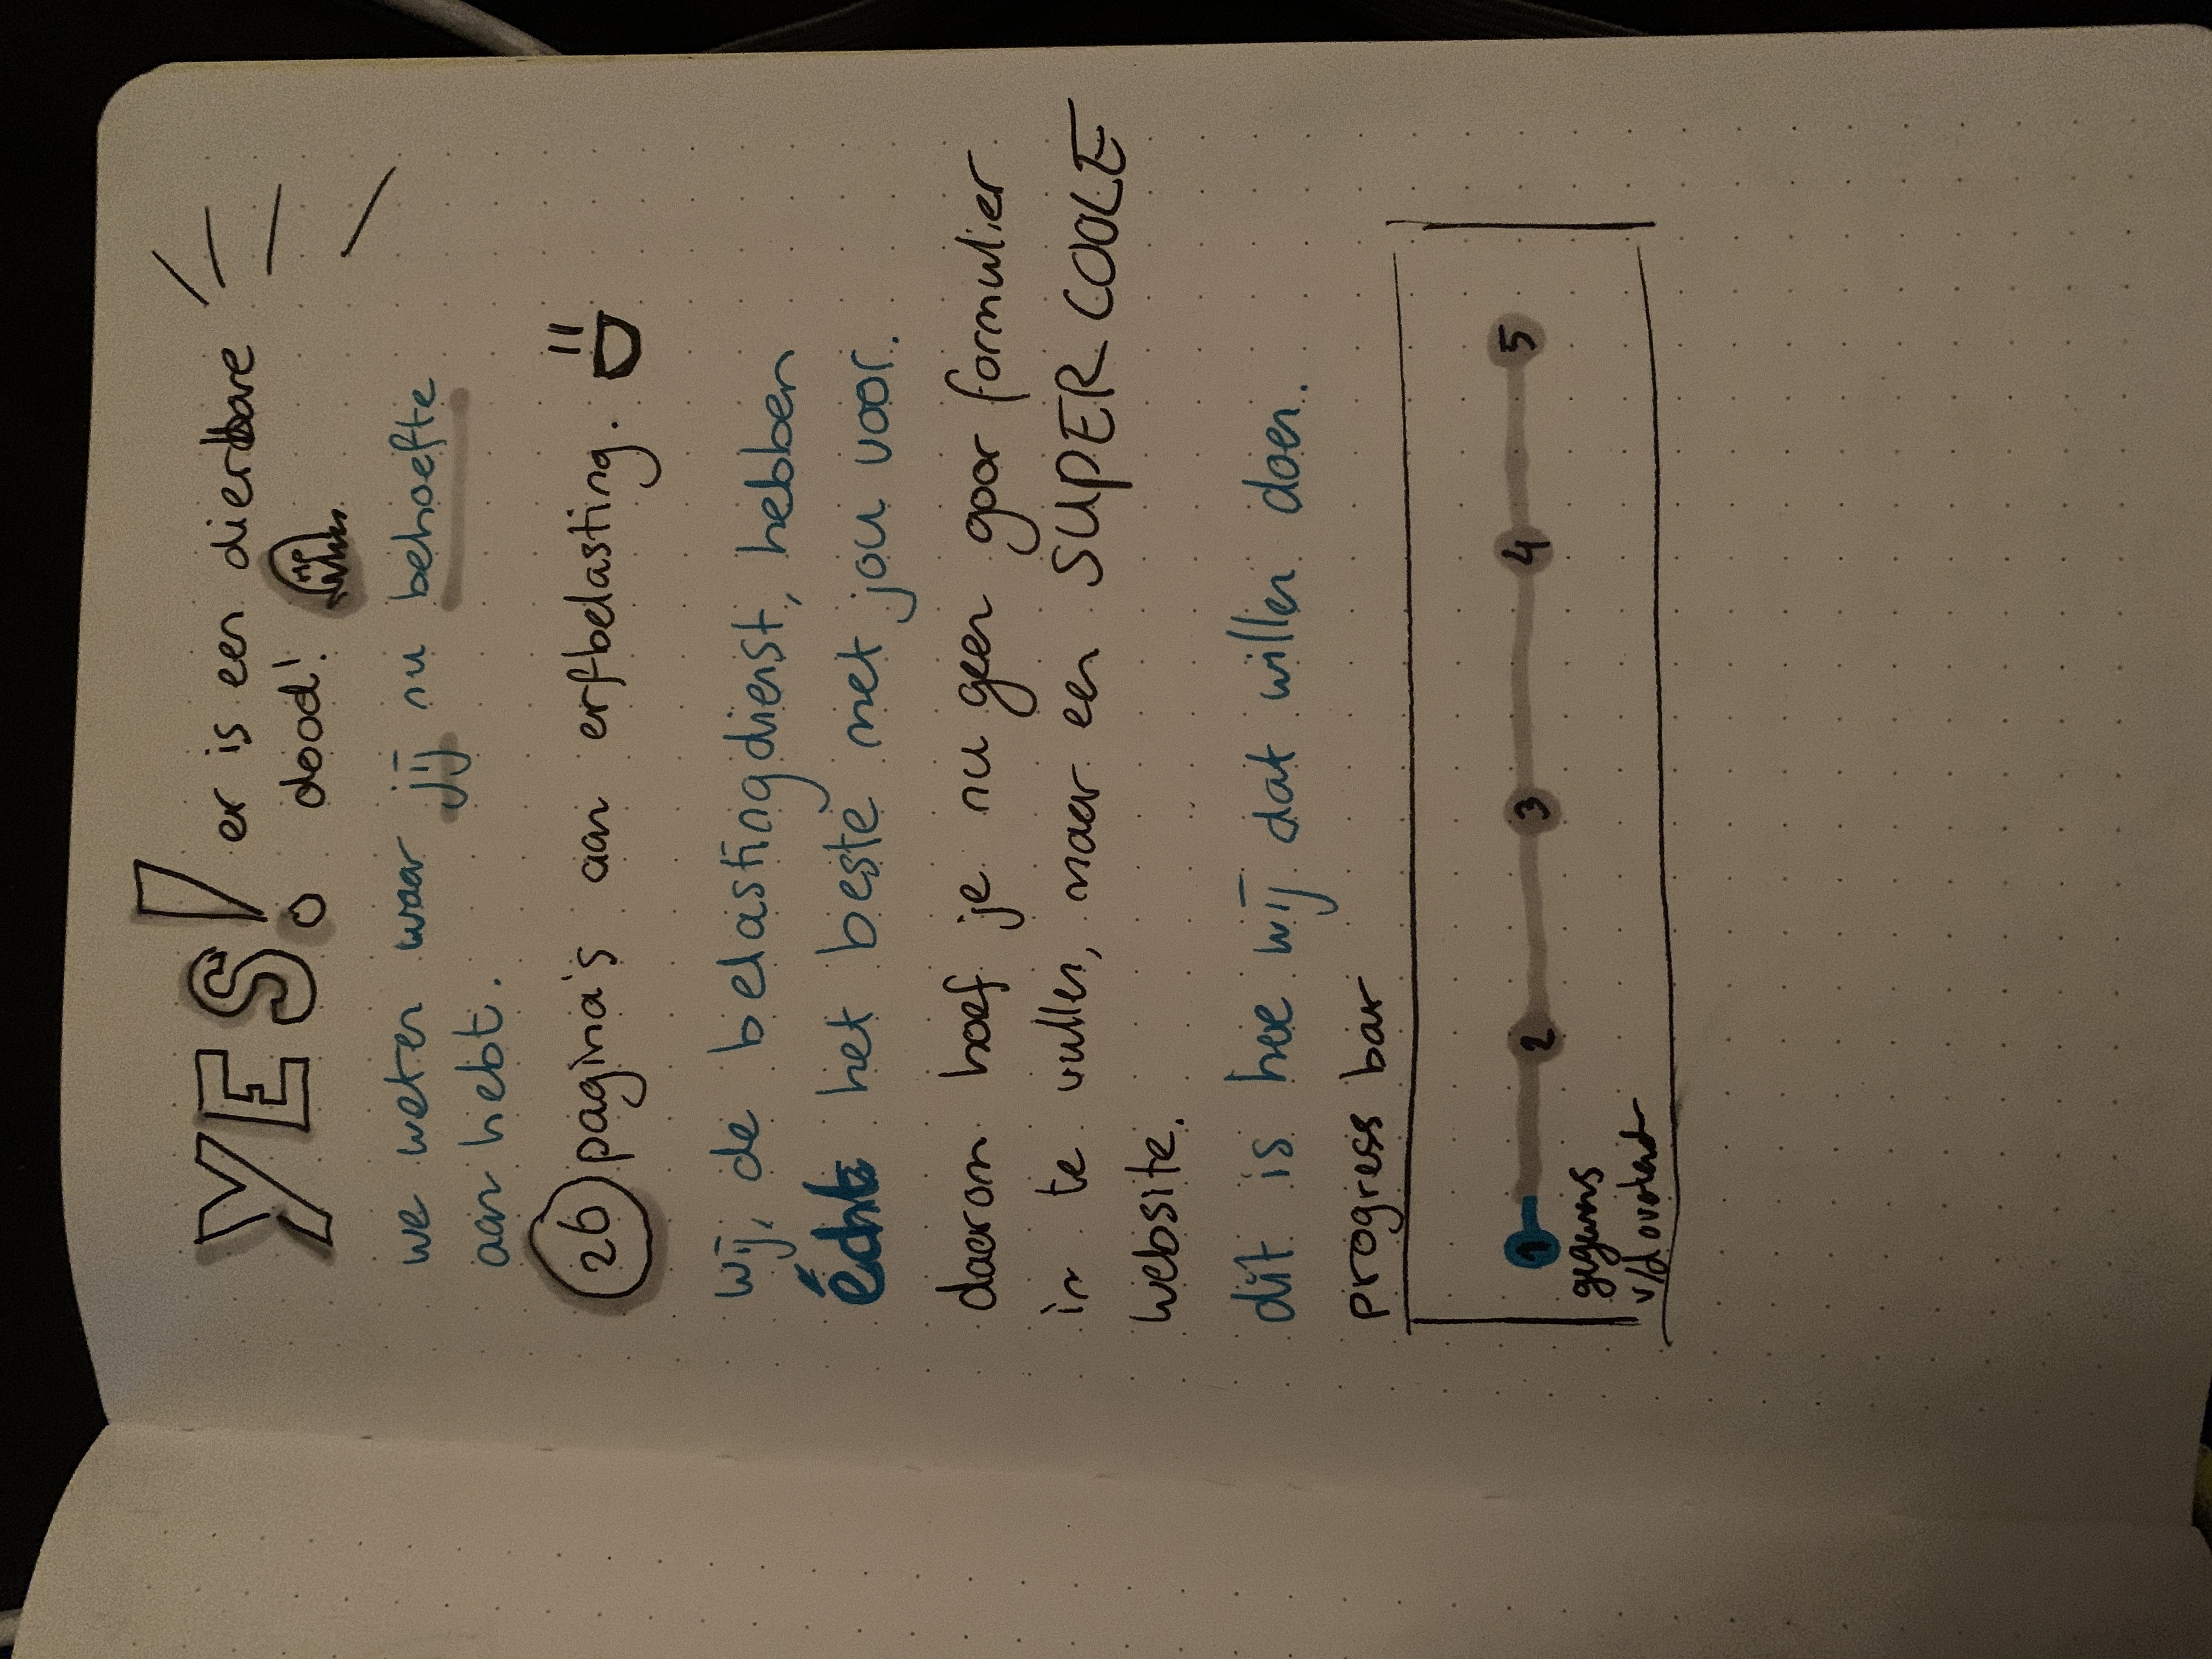 YES! er is een dierbare
dood!
we weten waar jij nu behoefte
aan hebt.
26 pagina's aan erfbelasting.
wij, de belastingdienst, hebben
écht het beste met jou voor.
daarom hoef je nu geen goor formulier
in te vullen, maar een SUPER COOLE
website.
dit is hoe wij dat willen doen.
progress bar
1 2 3 4 5
gegevens
v/d